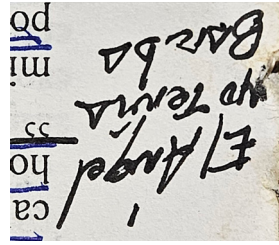 ¡El Ángel
no Tenía
Barba
ca
ho
55
mi
po